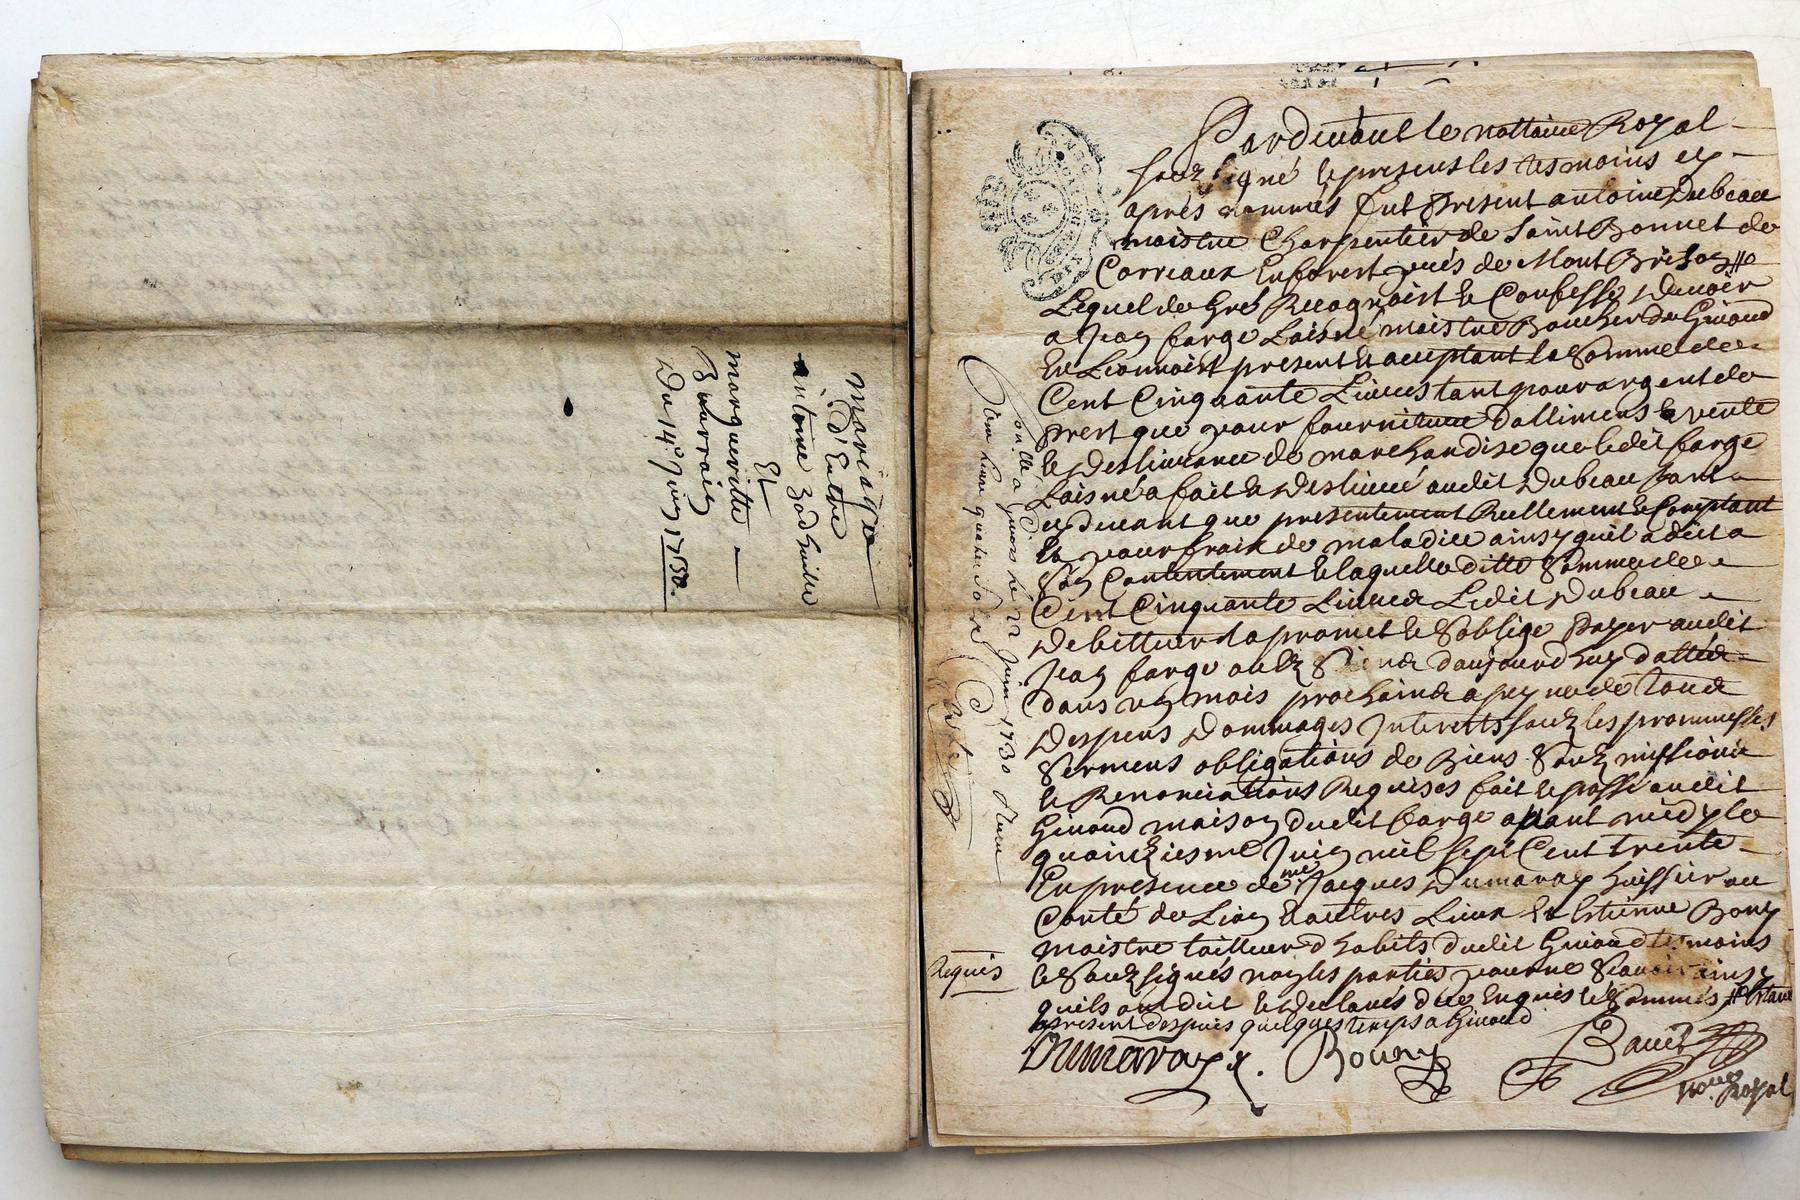 mariage
d'Entre
antoine
Et
margueritte
Du 14e. Juin 1730.
Pardevant le nottaire Royal
souz signé & presens les tesmoins cy
aprés nommés fut Present antoine Dubeau
maistre Charpentier de Saint Bonnet de
Correaux En forest prés de Mont Brison #
Lequel de Gré Recognoist & Confesse Devoir
a Jean farge Laisné maistre Boucher de Givord
En Lionnois present & aceptant la Somme de
Cent Cinquante Livres tant pour argent de
prest que pour fourniture dallimens & vente
& Deslivrance de marchandise que ledit farge
Laisné a fait & Deslivré audit Dubeau tant
cy devant que presentement Reellement & Comptant
& pour frais de maladie ainsy quil a dit a
Son Contentement & laquelle ditte Somme de
Cent Cinquante Livres Ledit Dubeau
Debitteur promet & Soblige Payer audit
Jean farge ou aux Siens daujourdhuy datte
dans un mois prochains a peyne de Tous
Despens Dommages Interetts souz les prommesses
Sermens obligations de Biens Souz missions
& Renonciations Requises fait & passé audit
Givord maison dudit farge avant midy le
quinziesme Juin mil sept Cent trente
En presence de me Jacques Dumaray huissier au
Conté de Lion & autres Lieux & Estienne Bony
maistre tailleur dhabits dudit Givord tesmoins
Requis
& Souz signés non les parties pour ne Scavoir ainsy
quils ont dit & declaré de ce Enquis & Sommés # Estant
apresent despuis quelques temps a Givord
Dumaray
Bouny
Royal
a Givors le 22 Juin 1730 Receu